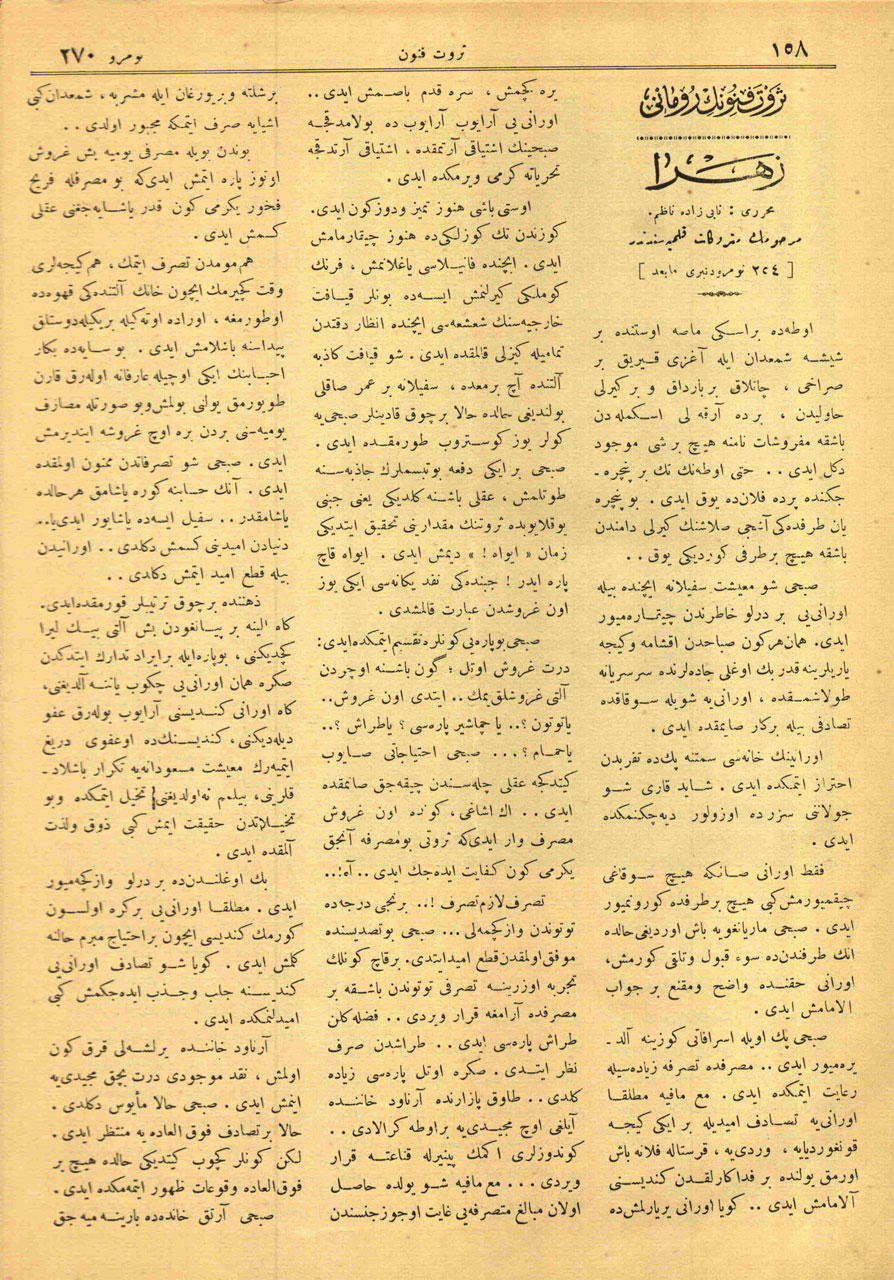 ١٥٨
ثروت فنون
نومرو ٢٧٠
ثروت فنونك رومانی
زهرا
محرری : نابی زاده ناظم .
مرحومك متروكات قلمیه سندندر
[ ٢٢٤ نومرودنبری مابعد ]
اوطه‌ده براسكی ماصه اوستنده بر
شیشه شمعدان ایله آغزی قیریق بر
صراحی ، چاتلاق برباردا‌ق و بر كیرلی
حاولیدن ، برده آرقه لی اسكمله‌دن
باشقه مفروشات نامنه هیچ بر شی موجود
دكل ایدی .. حتی اوطه‌نك تك بر پنجره ـ
جكنده پرده فلان‌ده یوق ایدی . بو پنجره
یان طرفده‌كی آشجی صلاشنك كیرلی دامندن
باشقه هیچ برطرفی كوردیكی یوق ..
صبحی شو معیشت سفیلانه ایچنده بیله
اورانی‌یی بر درلو خاطرندن چیقاره‌میور
ایدی. همان هركون صباحدن اقشامه وكیجه
یاریلرینه قدر بك اوغلی جاده‌لرنده سرسریانه
طولاشمقده ، اورانی‌یه شویله سوقاقده
تصادفی بیله بركار صایمقده ایدی .
اورانینك خانه‌سی سمتنه پك‌ده تقربدن
احتراز ایتمكده ایدی . شاید قاری شو
جولانی سزرده اوزولور دیه‌چكنمكده
ایدی .
فقط اورانی صانكه هیچ سوقاغی
چیقمیورمش كبی هیچ برطرفده كورونمیور
ایدی . صبحی ماریانغویه باش اوردیغی حالده
انك طرفندن‌ده سوء قبول وتلقی كورمش،
اورانی حقنده واضح ومقنع بر جواب
الامامش ایدی .
صبحی پك اویله اسرافاتی كوزینه آلد ـ
یره‌میور ایدی .. مصرفده تصرفه زیاده‌سیله
رعایت ایتمكده ایدی . مع مافیه مطلقا
اورانی‌یه تصادف امیدیله بر ایكی كیجه
قونغوردیایه ، وردی‌یه ، قرستاله فلانه باش
اورمق یولنده بر فداكارلقدن كندیسنی
آلامامش ایدی .. كویا اورانی بریارلمش‌ده
یره كچمش ، سره قدم باصمش ایدی ..
اورانی‌یی آرایوب آرایوب ده بولامدقجه
صبحینك اشتیاقی آرتمقده ، اشتیاقی آرتدقجه
تحریاته كرمی ویرمكده ایدی .
اوستی باشی هنوز تمیز ودوزكون ایدی.
كوزندن تك كوزلكی‌ده هنوز چیقارمامش
ایدی . ایچنده فانیلاسی یاغلانمش ، فرنك
كوملكی كیرلنمش ایسه‌ده بونلر قیافت
خارجیه‌سنك شعشعه‌سی ایچنده انظار دقتدن
تمامیله كیزلی قالمقده ایدی . شو قیافت كاذبه
آلتنده آچ برمعده ، سفیلانه بر عمر صاقلی
بولندیغی حالده حالا برچوق قادینلر صبحی‌یه
كولر یوز كوستروب طورمقده ایدی .
صبحی بر ایكی دفعه بوتبسملرك جاذبه‌سنه
طوتلمش ، عقلی باشنه كلدیكی یعنی جبنی
یوقلایوبده ثروتنك مقدارینی تحقیق ایتدیكی
زمان « ایواه ! » دیمش ایدی . ایواه قاچ
پاره ایدر ! جبنده‌كی نقد یكانه‌سی ایكی یوز
اون غروشدن عبارت قالمشدی .
صبحی بوپاره‌یی كونلره تقسیم ایتمكده ایدی:
درت غروش اوتل ؛ كون باشنه اوچردن
آلتی غروشلق یمك .. ایتدی اون غروش ..
یاتوتون ؟.. یا چماشیر پاره‌سی ؟ یاطراش ؟..
یاحمام ؟... صبحی احتیاجاتی صایوب
كیتدكجه عقلی چله‌سندن چیقه‌جق صانمقده
ایدی .. اك اشاغی ، كونده اون غروش
مصرف وار ایدی‌كه ثروتی بومصرفه آنجق
یكرمی كون كفایت ایده‌جك ایدی .. آه !..
تصرف لازم تصرف !.. برنجی درجه‌ده
توتوندن وازكچمه‌لی ... صبحی بوتصدیسنده
موفق اولمقدن قطع امید ایتدی. برقاچ كونلك
تجربه اوزرینه تصرفی توتوندن باشقه بر
مصرفده آرامغه قرار ویردی .. فضله كلن
طراش پاره‌سی ایدی .. طراشدن صرف
نظر ایتدی . صكره اوتل پاره‌سی زیاده
كلدی .. طاوق پازارنده آرناود خاننده
آیلغی اوچ مجیدی‌یه براوطه كرالادی ..
كوندوزلری اكمك پینیرله قناعته قرار
ویردی ... مع مافیه شو یولده حاصل
اولان مبالغ متصرفه‌یی غایت اوجوز جنسندن
برشلته وبر یورغان ایله مشربه ، شمعدان كبی
اشیایه صرف ایتمكه مجبور اولدی ..
بوندن بویله مصرفی یومیه بش غروش
اوتوز پاره ایتمش ایدی‌كه بو مصرفله فریخ
فخور یكرمی كون قدر یاشایه‌جغنی عقلی
كسمش ایدی .
هم مومدن تصرف ایتمك ، هم كیجه‌لری
وقت كچیرمك ایچون خانك آلتنده‌كی قهوه‌ده
اوطورمغه ، اوراده اوته‌كیله بریكیله دوستلق
پیداسنه باشلامش ایدی . بو سایه‌ده بكار
احبابنك ایكی اوچیله عارفانه اوله‌رق قارن
طویورمق یولنی بولمش وبو صورتله مصارف
یومیه‌سنی بردن بره اوچ غروشه ایندیرمش
ایدی . صبحی شو تصرفاتدن ممنون اولمقده
ایدی . آنك حسابنه كوره یاشامق هر حالده
یاشامقدر .. سفیل ایسه‌ده یاشایور ایدی‌یا ..
دنیادن امیدینی كسمش دكلدی .. اورانیدن
بیله قطع امید ایتمش دكلدی ..
ذهننده برچوق ترتیبلر قورمقده ایدی.
كاه الینه بر پیانغودن بش آلتی بیك لیرا
كچدیكنی ، بوپاره ایله برایراد تدارك ایتدكدن
صكره همان اورانی‌یی چكوب یاننه آلدیغنی،
كاه اورانی كندیسنی آرایوب بوله‌رق عفو
دیله‌دیكنی ، كندیسنك‌ده اوعفوی دریغ
ایتمیه‌رك معیشت مسعودانه‌یه تكرار باشلاد ـ
قلرینی، بیلم نه اولدیغنی تخیل ایتمكده وبو
تخیلاتدن حقیقت ایمش كبی ذوق ولذت
آلمقده ایدی .
بك اوغلندن‌ده بر درلو وازكچه‌میور
ایدی . مطلقا اورانی‌یی بركره اولسون
كورمك كندیسی ایچون براحتیاج مبرم حالنه
كلمش ایدی . كویا شو تصادف اورانی‌یی
كندیسنه جلب وجذب ایده‌جكمش كبی
امیدلنمكده ایدی .
آرناود خاننده یرلشه‌لی قرق كون
اولمش ، نقد موجودی درت بچق مجیدی‌یه
اینمش ایدی . صبحی حالا مأیوس دكلدی .
حالا بر تصادف فوق العاده‌یه منتظر ایدی .
لكن كونلر كچوب كیتدیكی حالده هیچ بر
فوق العاده وقوعات ظهور ایتمه‌مكده ایدی.
صبحی آرتق خانده‌ده بارینه میه جق